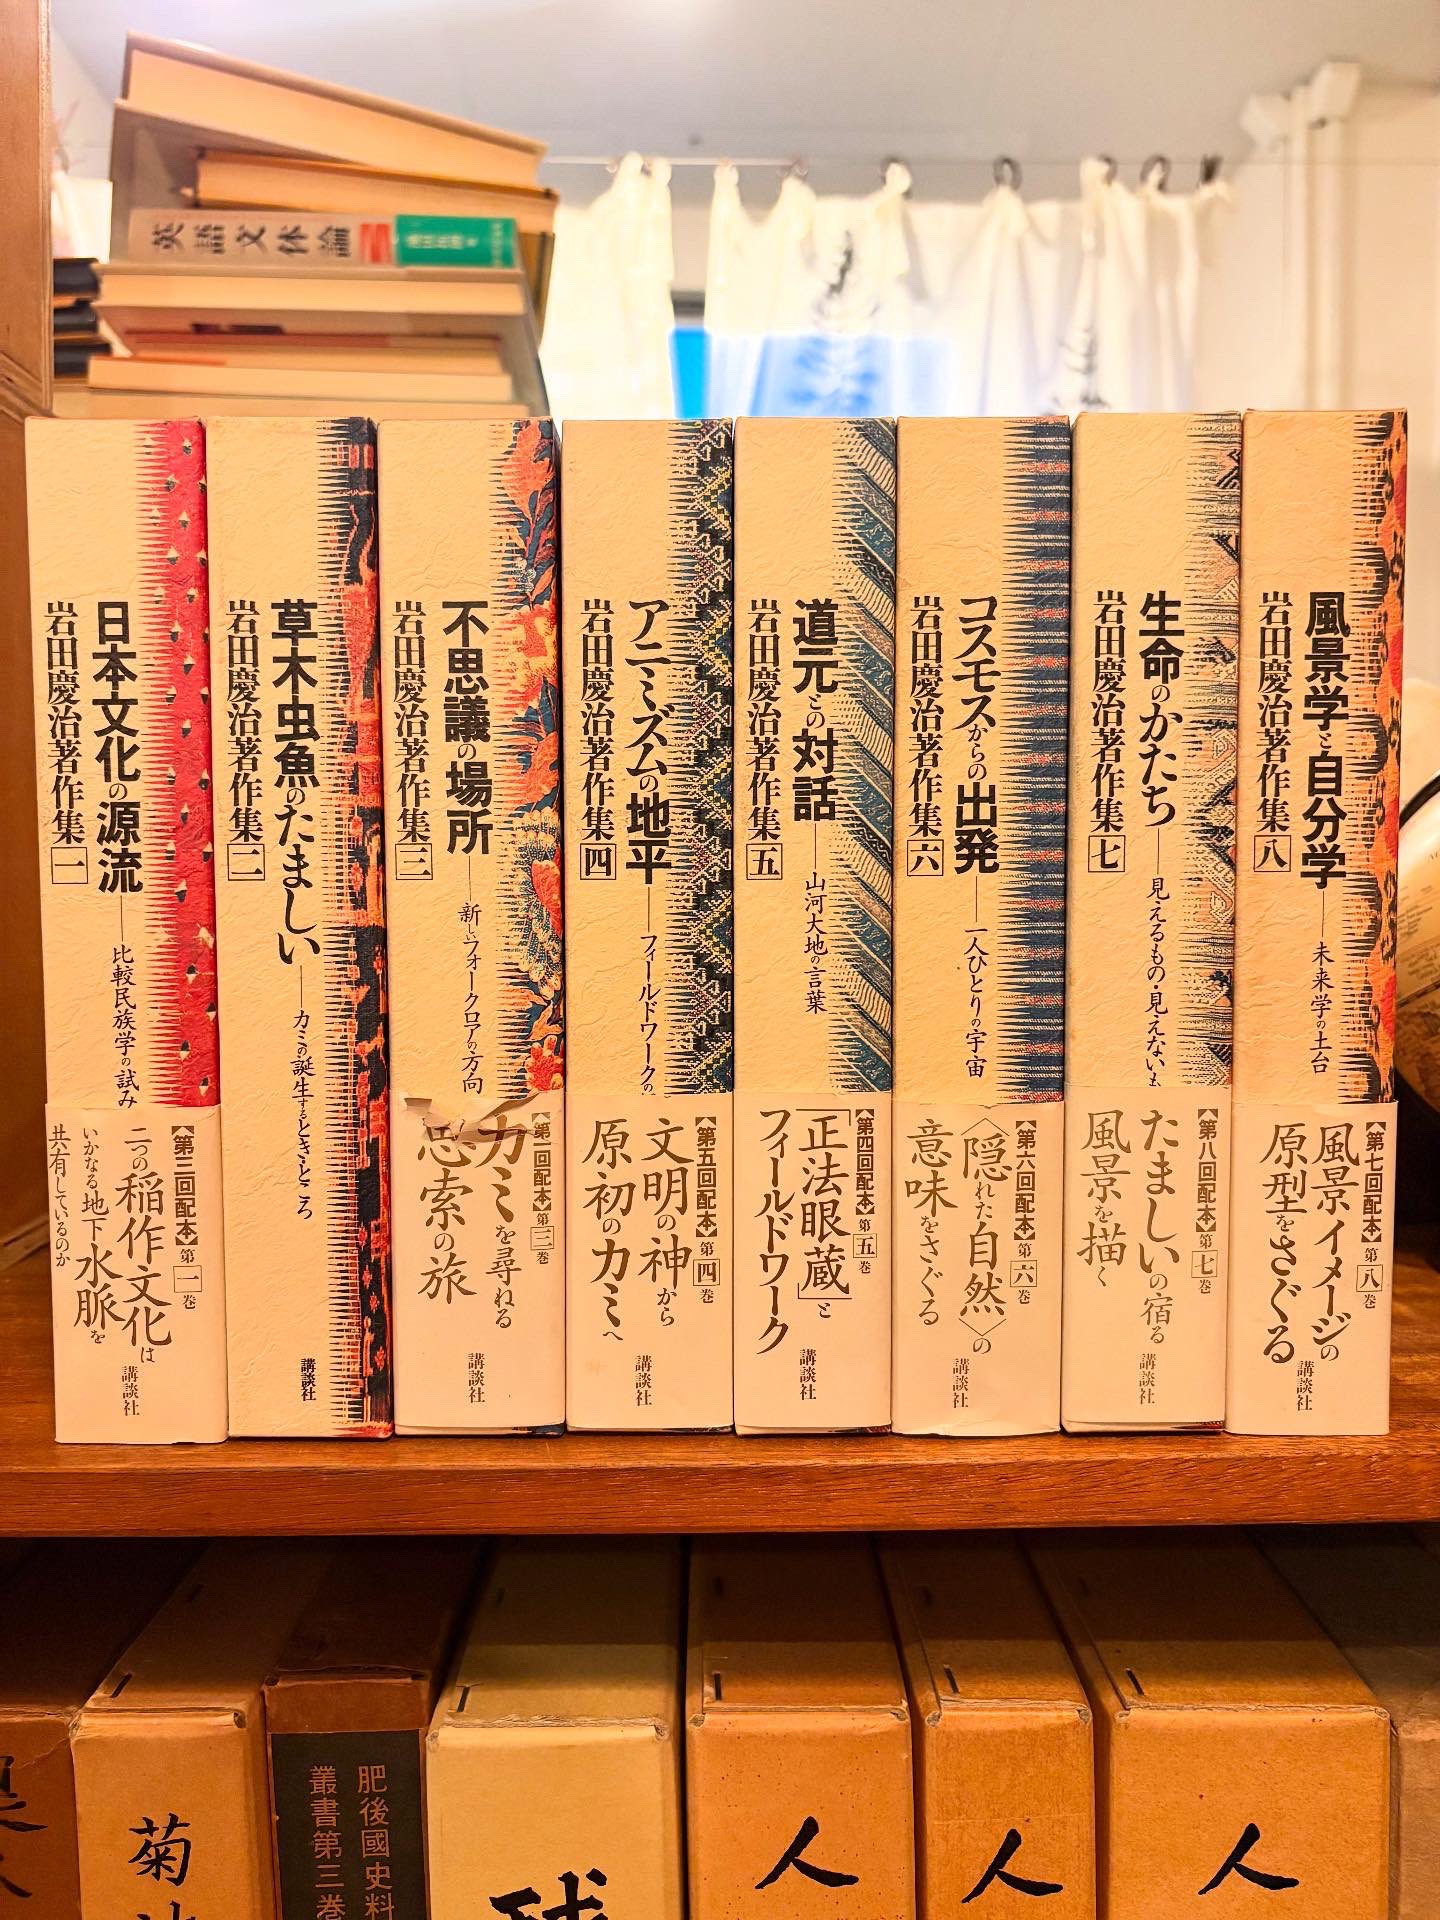 英語文体論
日本文化の源流――比較民族学の試み
岩田慶治著作集 一
【第三回配本】第一巻
二つの稲作文化は
いかなる地下水脈を
共有しているのか
講談社
草木虫魚のたましい――カミの誕生するとき・ところ
岩田慶治著作集 二
講談社
不思議の場所――新しいフォークロアの方向
岩田慶治著作集 三
【第一回配本】第三巻
カミを尋ねる
思索の旅
講談社
アニミズムの地平――フィールドワークの
岩田慶治著作集 四
【第五回配本】第四巻
文明の神から
原初のカミへ
講談社
道元との対話――山河大地の言葉
岩田慶治著作集 五
【第四回配本】第五巻
「正法眼蔵」と
フィールドワーク
講談社
コスモスからの出発――一人ひとりの宇宙
岩田慶治著作集 六
【第六回配本】第六巻
〈隠れた自然〉の
意味をさぐる
講談社
生命のかたち――見えるもの・見えないも
岩田慶治著作集 七
【第八回配本】第七巻
たましいの宿る
風景を描く
講談社
風景学と自分学――未来学の土台
岩田慶治著作集 八
【第七回配本】第八巻
風景イメージの
原型をさぐる
講談社
菊
肥後國史料
叢書第三巻
球
人
人
人